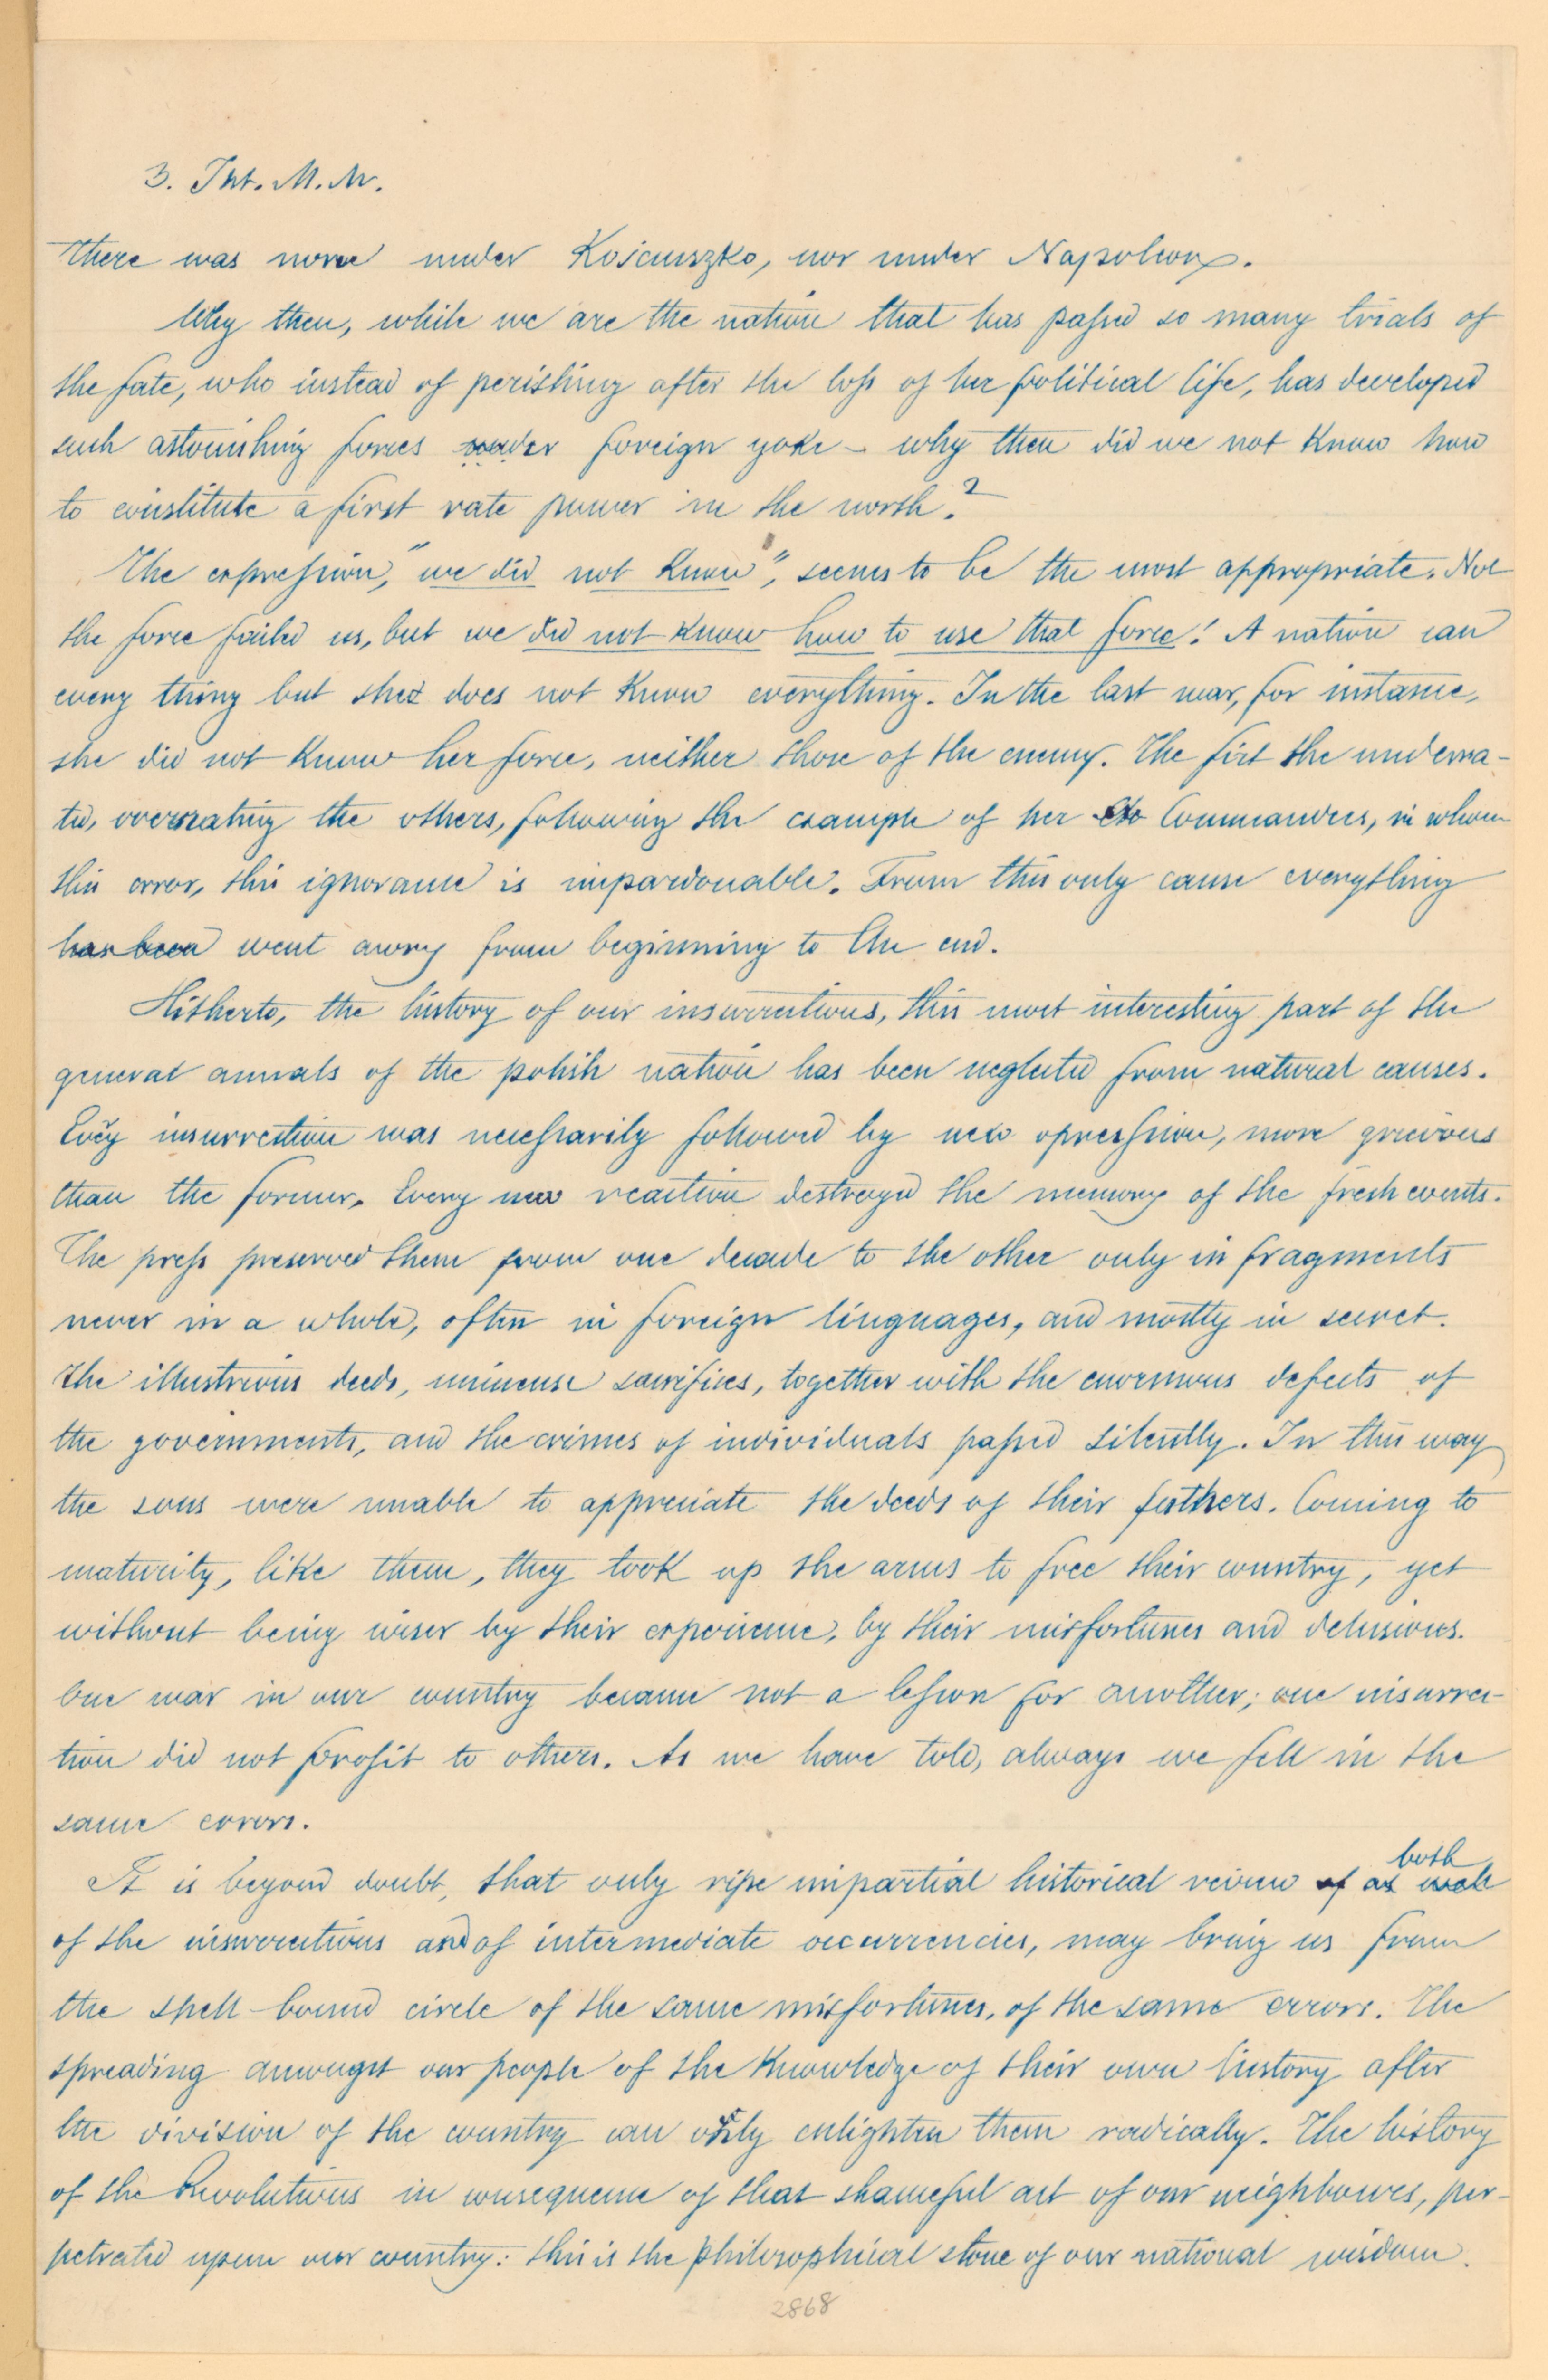 3. Int. M. M.
there was none under Kościuszko, nor under Napoleon.
Why then, while we are the nation that has passed so many trials of
the fate, who instead of perishing after the loss of her political life, has developed
such astonishing forces under foreign yoke – why then did we not know how
to constitute a first rate power in the north?
The expression, "we did not know", seems to be the most appropriate. Not
the force failed us, but we did not know how to use that force! A nation can
every thing but she does not know everything. In the last war, for instance,
she did not know her force, neither those of the enemy. The first she underra-
ted, overrating the others, following the example of her Commanders, in whom
this error, this ignorance is unpardonable. From this only cause everything
has been went awry from beginning to the end.
Hitherto, the history of our insurrections, this most interesting part of the
general annals of the polish nation has been neglected from natural causes.
Every insurrection was necessarily followed by new opression, more grievous
than the former. Every new reaction destroyed the memory of the fresh events.
The press preserved them from one decade to the other only in fragments
never in a whole, often in foreign linguages, and mostly in secret.
The illustrious deeds, immense sacrifices, together with the enormous defects of
the governments, and the crimes of individuals passed silently. In this way
the sons were unable to appreciate the deeds of their fathers. Coming to
maturity, like them, they took up the arms to free their country, yet
without being wiser by their experience, by their misfortunes and delusions.
One war in our country became not a lesson for another; one insurrec-
tion did not profit to others. As we have told, always we fell in the
same errors.
It is beyond doubt, that only ripe impartial historical review of as well both
of the insurrections and of intermediate occurrencies, may bring us from
the spell-bound circle of the same misfortunes, of the same errors. The
spreading amongst our people of the knowledge of their own history after
the division of the country can only enlighten them radically. The history
of the Revolutions in consequence of that shameful act of our neighboures, per-
petrated upon our country: this is the philosophical stone of our national wisdom.
2868